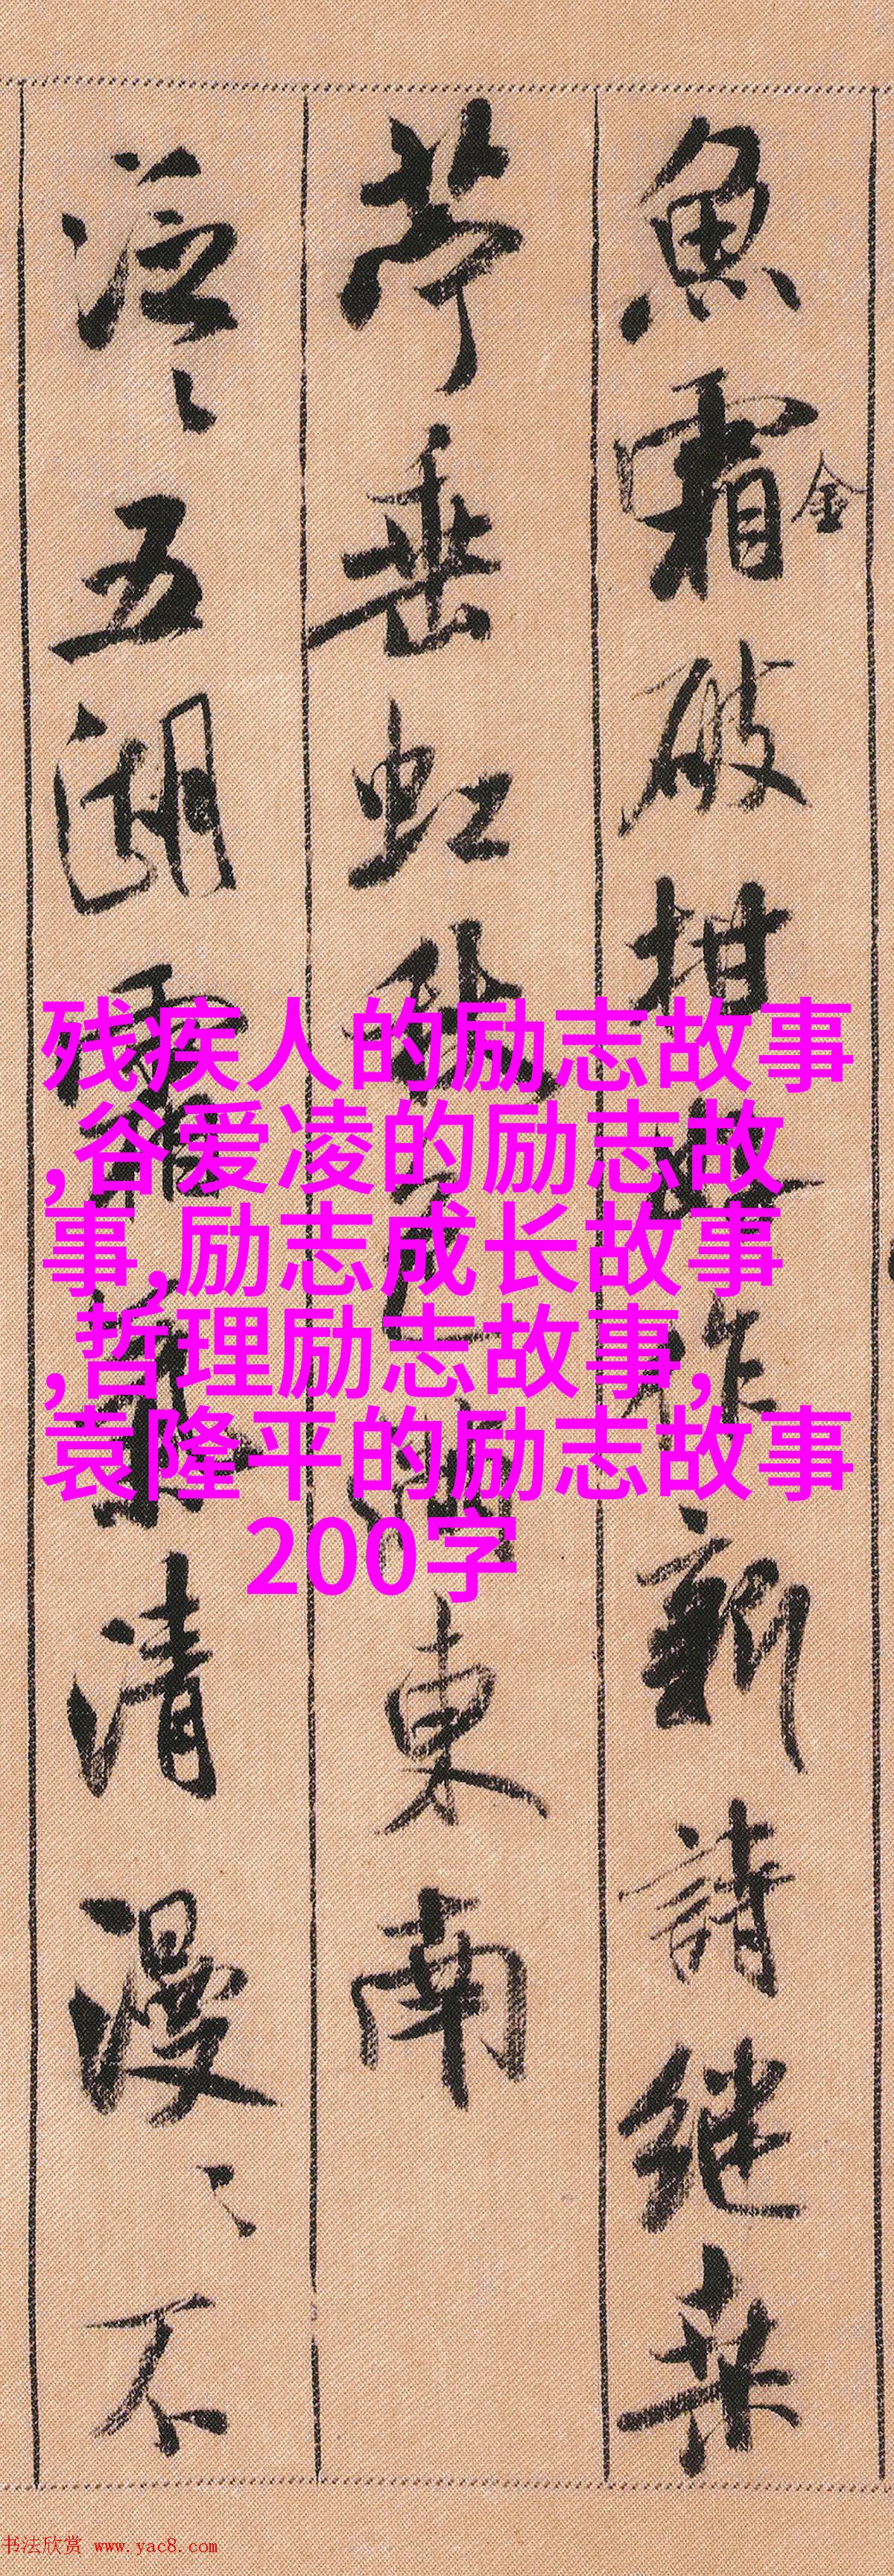 魚霜金破柑好作新詩継桑
苧垂虹秋色滿東南
泛〻五湖霜氣清漫〻不
残疾人的励志故事
,谷爱凌的励志故
事,励志成长故事
,哲理励志故事,
袁隆平的励志故事
200字
书法欣赏 www.yac8.com